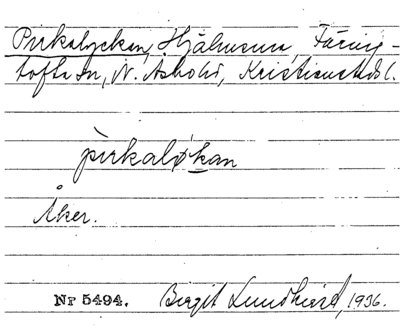 Pirkalyckan, Hjälmsma, Färing-
tofta sn, N. Åsbo hd, Kristianstads l.
pirkaløkan
Åker.
Nr 5494. Birgit Lundkvist, 1936.